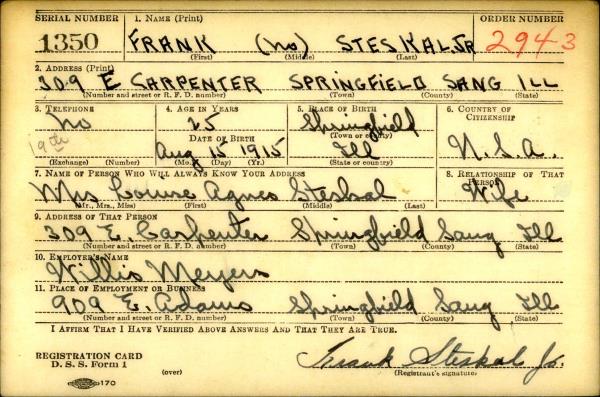 SERIAL NUMBER 1. NAME (Print) ORDER NUMBER
1350 FRANK (no) STESKAL, JR 2943
(First) (Middle) (Last)
2. ADDRESS (Print)
309 E CARPENTER SPRINGFIELD SANG ILL
(Number and street or R. F. D. number) (Town) (County) (State)
3. TELEPHONE 4. AGE IN YEARS 5. PLACE OF BIRTH 6. COUNTRY OF CITIZENSHIP
No 25 Springfield
(Town or county)
19th DATE OF BIRTH
Aug 15 1915 Ill U.S.A.
(Exchange) (Number) (Mo.) (Day) (Yr.) (State or country)
7. NAME OF PERSON WHO WILL ALWAYS KNOW YOUR ADDRESS 8. RELATIONSHIP OF THAT PERSON
Mrs Louise Agnes Steskal Wife
(Mr., Mrs., Miss) (First) (Middle) (Last)
9. ADDRESS OF THAT PERSON
309 E. Carpenter Springfield Sang Ill
(Number and street or R. F. D. number) (Town) (County) (State)
10. EMPLOYER'S NAME
Willis Meyers
11. PLACE OF EMPLOYMENT OR BUSINESS
909 E. Adams Springfield Sang Ill
(Number and street or R. F. D. number) (Town) (County) (State)
I AFFIRM THAT I HAVE VERIFIED ABOVE ANSWERS AND THAT THEY ARE TRUE.
REGISTRATION CARD
D. S. S. Form 1 Frank Steskal Jr.
(over) (Registrant's signature)
170